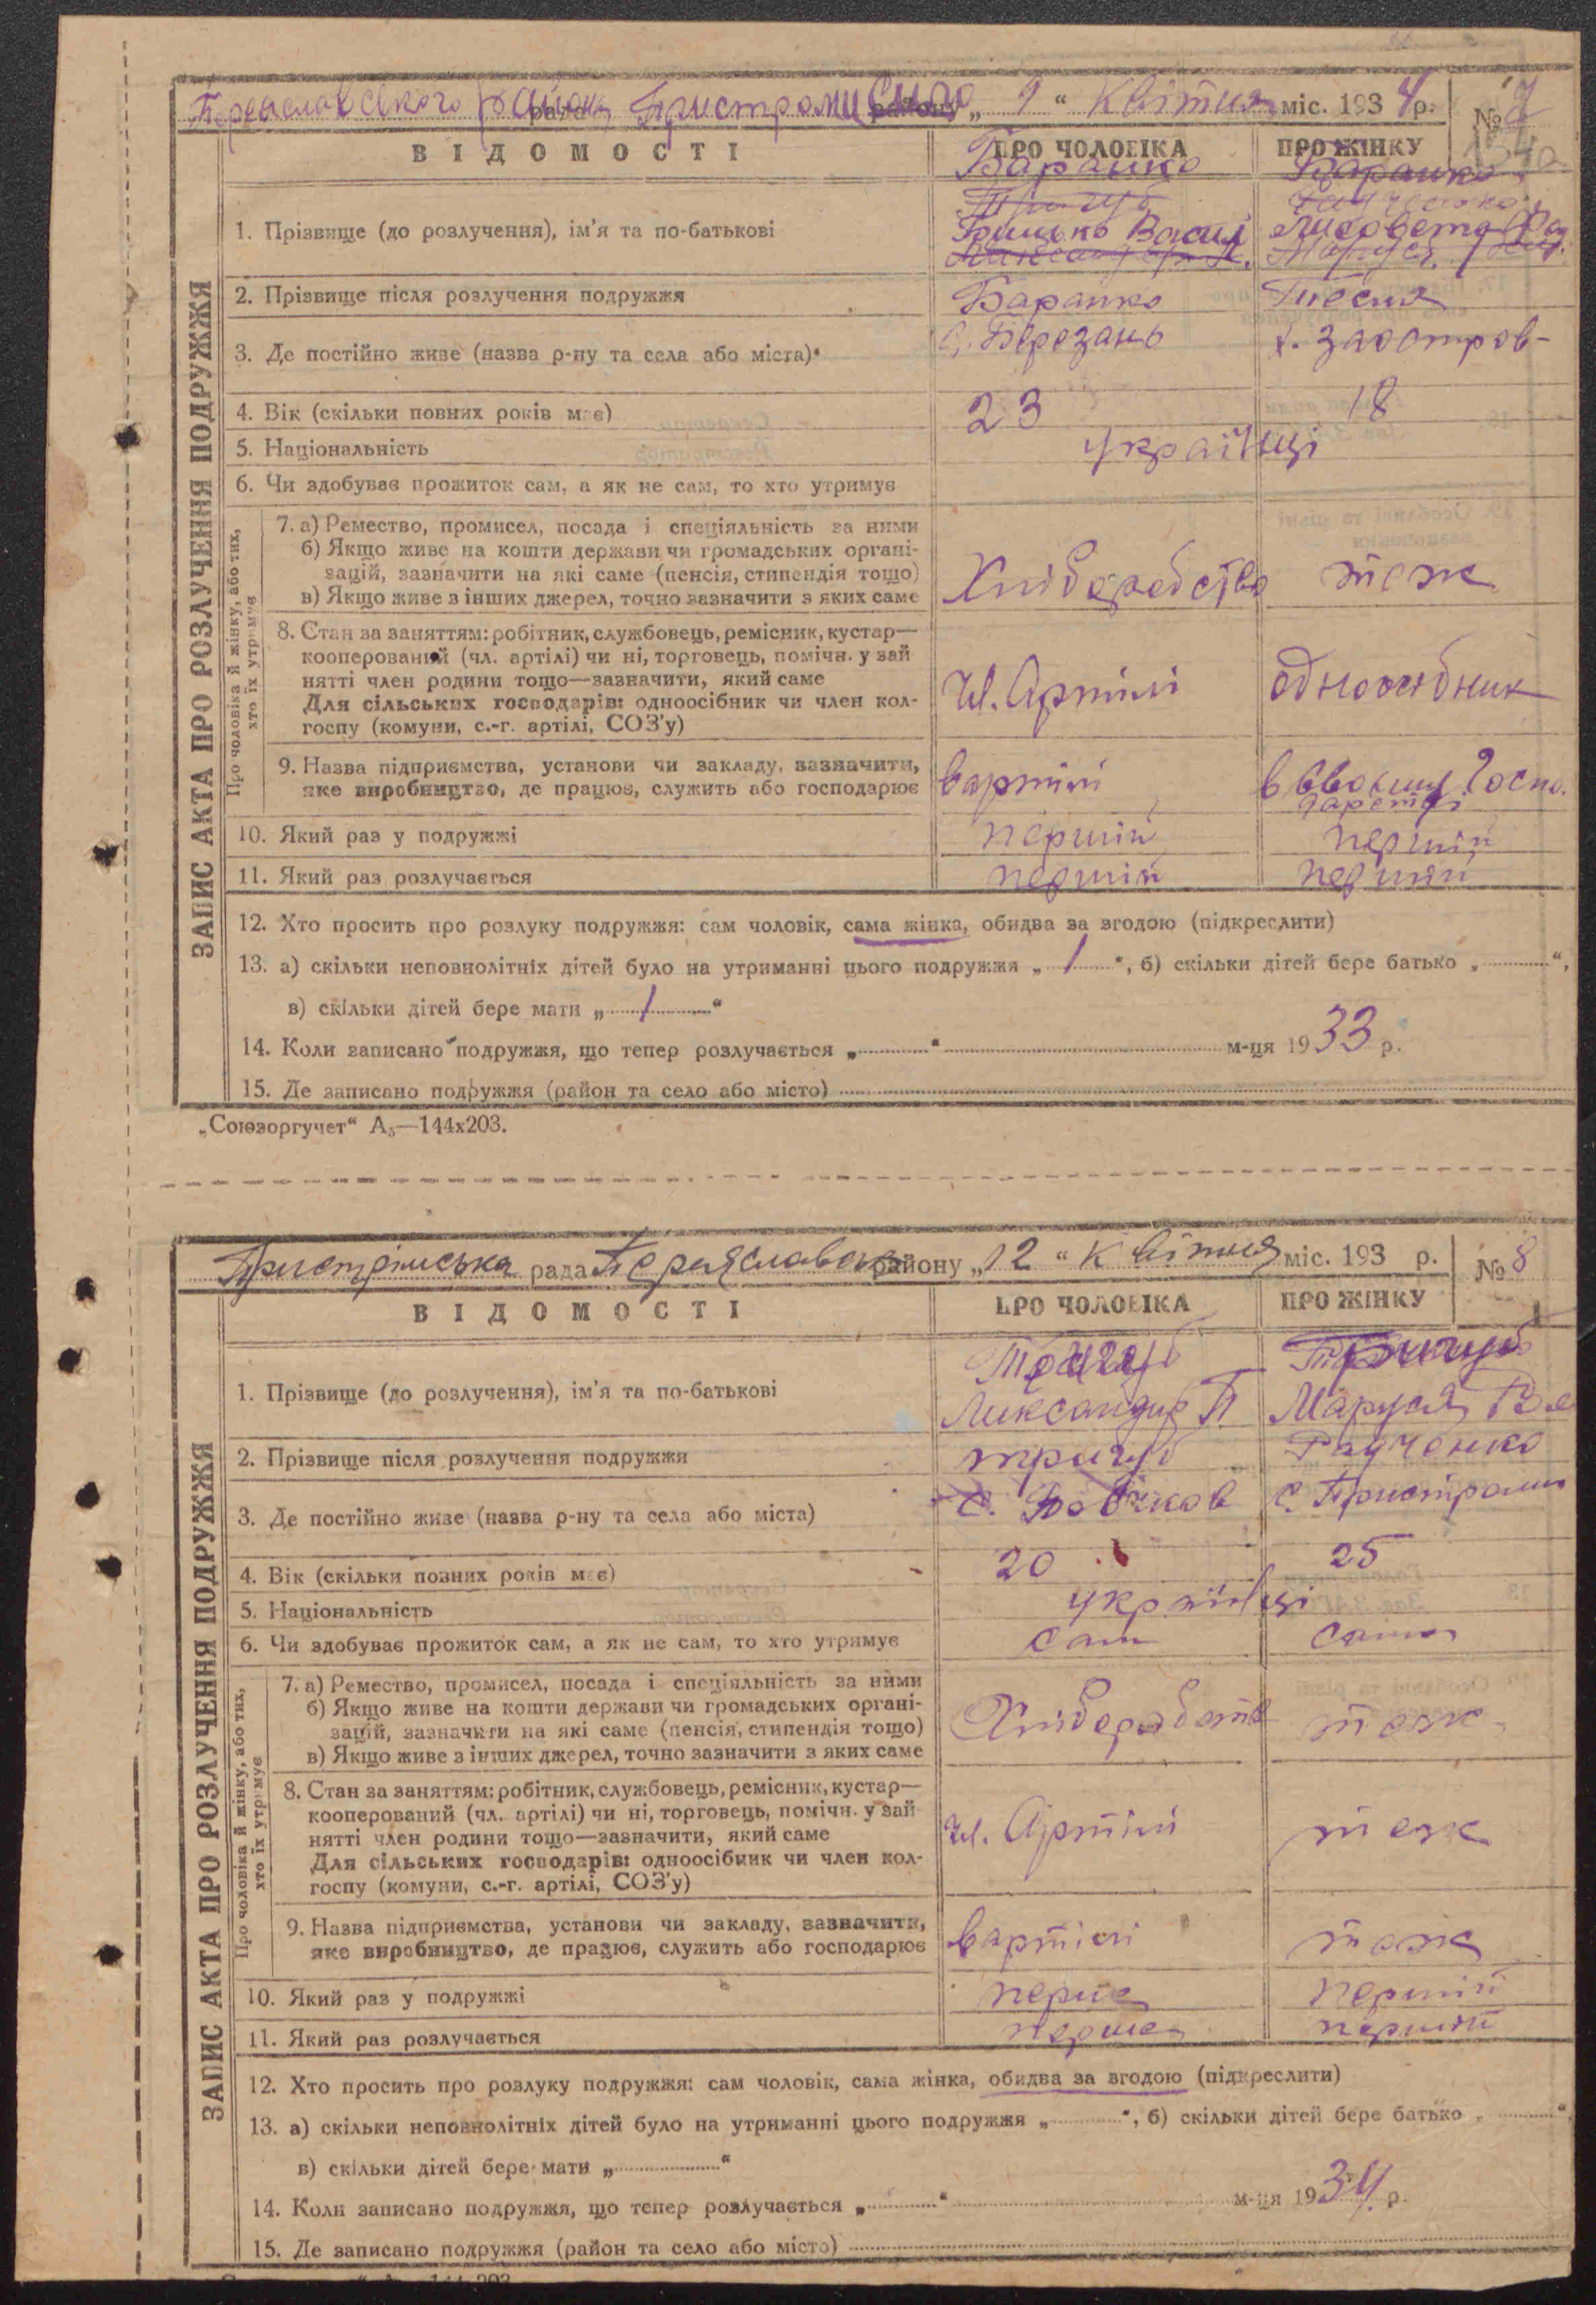 Переяславського району Пристроми „ 9 “ Квітня міс. 1934 р. № 7
ВІДОМОСТІ ПРО ЧОЛОВІКА ПРО ЖІНКУ
ЗАПИС АКТА ПРО РОЗЛУЧЕННЯ ПОДРУЖЖЯ
Баранко Баранко
1. Прізвище (до розлучення), ім'я та по-батькові
Грицько Васил Лисовета
2. Прізвище після розлучення подружжя Баранко Тесля
3. Де постійно живе (назва р-ну та села або міста) с. Березань х. Заостров-
4. Вік (скільки повних років має) 23 18
5. Національність українці
6. Чи здобуває прожиток сам, а як не сам, то хто утримує
Про чоловіка й жінку, або тих,
хто їх утримує
7. а) Ремество, промисел, посада і спеціяльність за ними
б) Якщо живе на кошти держави чи громадських органі-
зацій, зазначити на які саме (пенсія, стипендія тощо)
в) Якщо живе з інших джерел, точно зазначити з яких саме
Хліборобство тож
8. Стан за заняттям: робітник, службовець, ремісник, кустар—
кооперований (чл. артілі) чи ні, торговець, помічн. у зай
нятті член родини тощо—зазначити, який саме
Для сільських господарів: одноосібник чи член кол-
госпу (комуни, с.-г. артілі, СОЗ'у)
чл. Артілі одноосібник
9. Назва підприємства, установи чи закладу, зазначити,
яке виробництво, де працює, служить або господарює
вартілі в свойму госпо.
дарстві
10. Який раз у подружжі перший перший
11. Який раз розлучається перший перший
12. Хто просить про розлуку подружжя: сам чоловік, сама жінка, обидва за згодою (підкреслити)
13. а) скільки неповнолітніх дітей було на утриманні цього подружжя „ 1 “, б) скільки дітей бере батько „ “,
в) скільки дітей бере мати „ 1 “
14. Коли записано подружжя, що тепер розлучається „ “ м-ця 1933 р.
15. Де записано подружжя (район та село або місто)
„Союзоргучет“ А5—144х203.
Пристрімська рада Переяславськ району „ 12 “ квітня міс. 193 р. № 8
ВІДОМОСТІ ПРО ЧОЛОВІКА ПРО ЖІНКУ
ЗАПИС АКТА ПРО РОЗЛУЧЕННЯ ПОДРУЖЖЯ
Тричуб Тричуб
1. Прізвище (до розлучення), ім'я та по-батькові
Ликсандир П Маруся
2. Прізвище після розлучення подружжя тричуб Радченко
3. Де постійно живе (назва р-ну та села або міста) с. с. Пристроми
4. Вік (скільки повних років має) 20 25
5. Національність українці
6. Чи здобуває прожиток сам, а як не сам, то хто утримує сам сама
Про чоловіка й жінку, або тих,
хто їх утримує
7. а) Ремество, промисел, посада і спеціяльність за ними
б) Якщо живе на кошти держави чи громадських органі-
зацій, зазначити на які саме (пенсія, стипендія тощо)
в) Якщо живе з інших джерел, точно зазначити з яких саме
Хліборобств тож
8. Стан за заняттям: робітник, службовець, ремісник, кустар—
кооперований (чл. артілі) чи ні, торговець, помічн. у зай
нятті член родини тощо—зазначити, який саме
Для сільських господарів: одноосібник чи член кол-
госпу (комуни, с.-г. артілі, СОЗ'у)
чл. Артілі тож
9. Назва підприємства, установи чи закладу, зазначити,
яке виробництво, де працює, служить або господарює
вартілі тож
10. Який раз у подружжі перше перший
11. Який раз розлучається перше перший
12. Хто просить про розлуку подружжя: сам чоловік, сама жінка, обидва за згодою (підкреслити)
13. а) скільки неповнолітніх дітей було на утриманні цього подружжя „ “, б) скільки дітей бере батько „ “
в) скільки дітей бере мати „ “
14. Коли записано подружжя, що тепер розлучається „ “ м-ця 1934 р.
15. Де записано подружжя (район та село або місто)